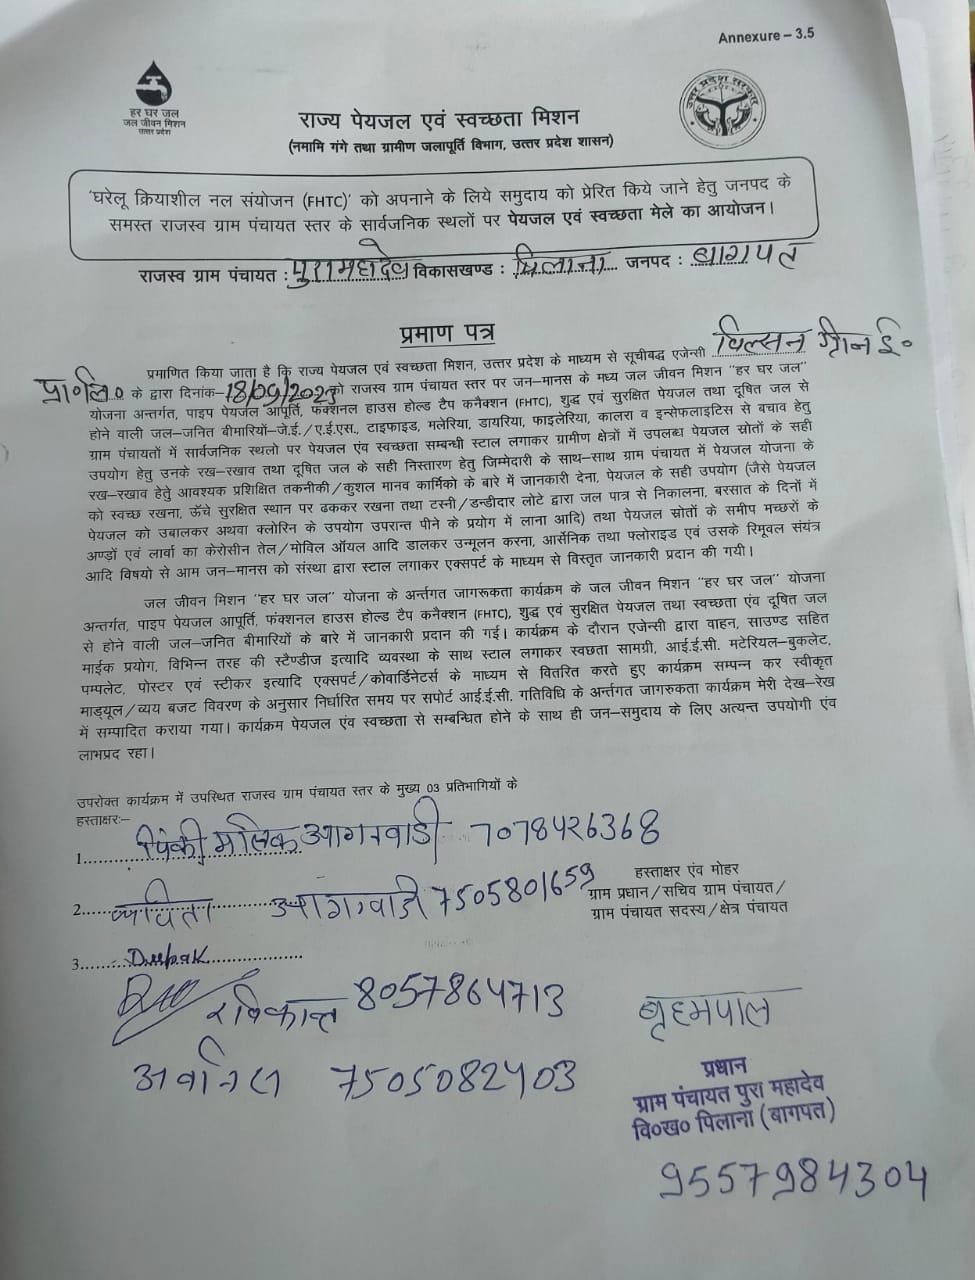 Annexure – 3.5
हर घर जल
जल जीवन मिशन
उत्तर प्रदेश
उत्तर प्रदेश सरकार
राज्य पेयजल एवं स्वच्छता मिशन
(नमामि गंगे तथा ग्रामीण जलापूर्ति विभाग, उत्तर प्रदेश शासन)
'घरेलू क्रियाशील नल संयोजन (FHTC)' को अपनाने के लिये समुदाय को प्रेरित किये जाने हेतु जनपद के
समस्त राजस्व ग्राम पंचायत स्तर के सार्वजनिक स्थलों पर पेयजल एवं स्वच्छता मेले का आयोजन।
राजस्व ग्राम पंचायत : पुरामहादेव विकासखण्ड : पिलाना जनपद : बागपत
प्रमाण पत्र
प्रमाणित किया जाता है कि राज्य पेयजल एवं स्वच्छता मिशन, उत्तर प्रदेश के माध्यम से सूचीबद्ध एजेन्सी विल्सन ग्रीन ई०
प्रा०लि० के द्वारा दिनांक–18/09/2023 को राजस्व ग्राम पंचायत स्तर पर जन–मानस के मध्य जल जीवन मिशन "हर घर जल"
योजना अन्तर्गत, पाइप पेयजल आपूर्ति, फंक्शनल हाउस होल्ड टैप कनैक्शन (FHTC), शुद्ध एवं सुरक्षित पेयजल तथा दूषित जल से
होने वाली जल–जनित बीमारियों–जे.ई./ए.ई.एस., टाइफाइड, मलेरिया, डायरिया, फाइलेरिया, कालरा व इन्सेफलाइटिस से बचाव हेतु
ग्राम पंचायतों में सार्वजनिक स्थलो पर पेयजल एंव स्वच्छता सम्बन्धी स्टाल लगाकर ग्रामीण क्षेत्रों में उपलब्ध पेयजल स्रोतों के सही
उपयोग हेतु उनके रख–रखाव तथा दूषित जल के सही निस्तारण हेतु जिम्मेदारी के साथ–साथ ग्राम पंचायत में पेयजल योजना के
रख–रखाव हेतु आवश्यक प्रशिक्षित तकनीकी/कुशल मानव कार्मिको के बारे में जानकारी देना, पेयजल के सही उपयोग (जैसे पेयजल
को स्वच्छ रखना, ऊँचे सुरक्षित स्थान पर ढककर रखना तथा टस्नी/डन्डीदार लोटे द्वारा जल पात्र से निकालना, बरसात के दिनों में
पेयजल को उबालकर अथवा क्लोरिन के उपयोग उपरान्त पीने के प्रयोग में लाना आदि) तथा पेयजल स्रोतों के समीप मच्छरों के
अण्डों एवं लार्वा का केरोसीन तेल/मोविल ऑयल आदि डालकर उन्मूलन करना, आर्सेनिक तथा फ्लोराइड एवं उसके रिमूवल संयंत्र
आदि विषयो से आम जन–मानस को संस्था द्वारा स्टाल लगाकर एक्सपर्ट के माध्यम से विस्तृत जानकारी प्रदान की गयी।
जल जीवन मिशन "हर घर जल" योजना के अर्न्तगत जागरूकता कार्यक्रम के जल जीवन मिशन "हर घर जल" योजना
अन्तर्गत, पाइप पेयजल आपूर्ति, फंक्शनल हाउस होल्ड टैप कनैक्शन (FHTC), शुद्ध एवं सुरक्षित पेयजल तथा स्वच्छता एंव दूषित जल
से होने वाली जल–जनित बीमारियों के बारे में जानकारी प्रदान की गई। कार्यक्रम के दौरान एजेन्सी द्वारा वाहन, साउण्ड सहित
माईक प्रयोग, विभिन्न तरह की स्टैण्डीज इत्यादि व्यवस्था के साथ स्टाल लगाकर स्वछता सामग्री, आई.ई.सी. मटेरियल–बुकलेट,
पम्पलेट, पोस्टर एवं स्टीकर इत्यादि एक्सपर्ट/कोवार्डिनेटर्स के माध्यम से वितरित करते हुए कार्यक्रम सम्पन्न कर स्वीकृत
माड्यूल/व्यय बजट विवरण के अनुसार निर्धारित समय पर सपोर्ट आई.ई.सी. गतिविधि के अर्न्तगत जागरुकता कार्यक्रम मेरी देख–रेख
में सम्पादित कराया गया। कार्यक्रम पेयजल एंव स्वच्छता से सम्बन्धित होने के साथ ही जन–समुदाय के लिए अत्यन्त उपयोगी एंव
लाभप्रद रहा।
उपरोक्त कार्यक्रम में उपस्थित राजस्व ग्राम पंचायत स्तर के मुख्य 03 प्रतिभागियों के
हस्ताक्षरः–
1. पिंकी मलिक आगनवाडी 7078426368
हस्ताक्षर एंव मोहर
2. आंगनवाडी 7505801659 ग्राम प्रधान/सचिव ग्राम पंचायत/
ग्राम पंचायत सदस्य/क्षेत्र पंचायत
3. Deepak
रविकान्त 8057864713
बृहमपाल
7505082403
प्रधान
ग्राम पंचायत पुरा महादेव
वि०ख० पिलाना (बागपत)
9557984304